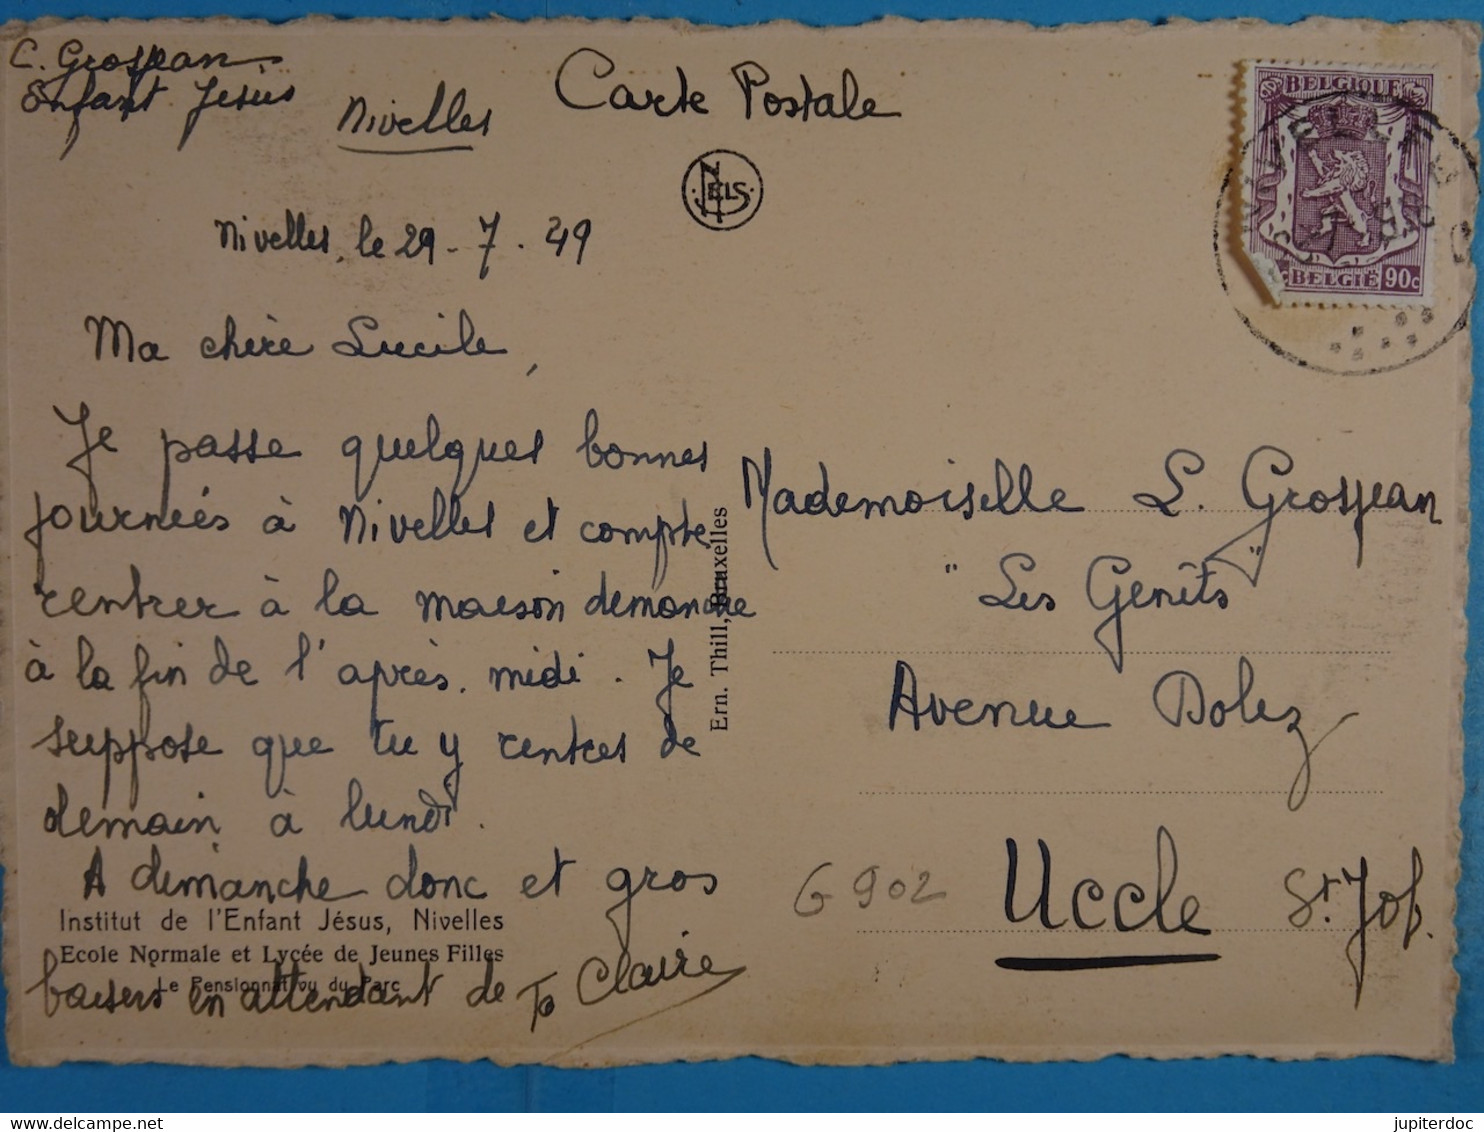 C. Grosjean
Enfant Jésus
Nivelles
Carte Postale
NELS
BELGIQUE
BELGIË 90c
NIVELLES
Nivelles, le 29-7.49
Ma chère Lucile,
Je passe quelques bonnes
journées à Nivelles et compte
rentrer à la maison dimanche
à la fin de l'après-midi. Je
suppose que tu y rentres de
demain à lundi.
A dimanche donc et gros
baisers en attendant de Ta Claire
Institut de l'Enfant Jésus, Nivelles
Ecole Normale et Lycée de Jeunes Filles
Le Pensionnat vu du Parc
Ern. Thill, Bruxelles
Mademoiselle L. Grosjean
"Les Genêts"
Avenue Dolez
Uccle St. Job.
G 902
delcampe.net
jupiterdoc